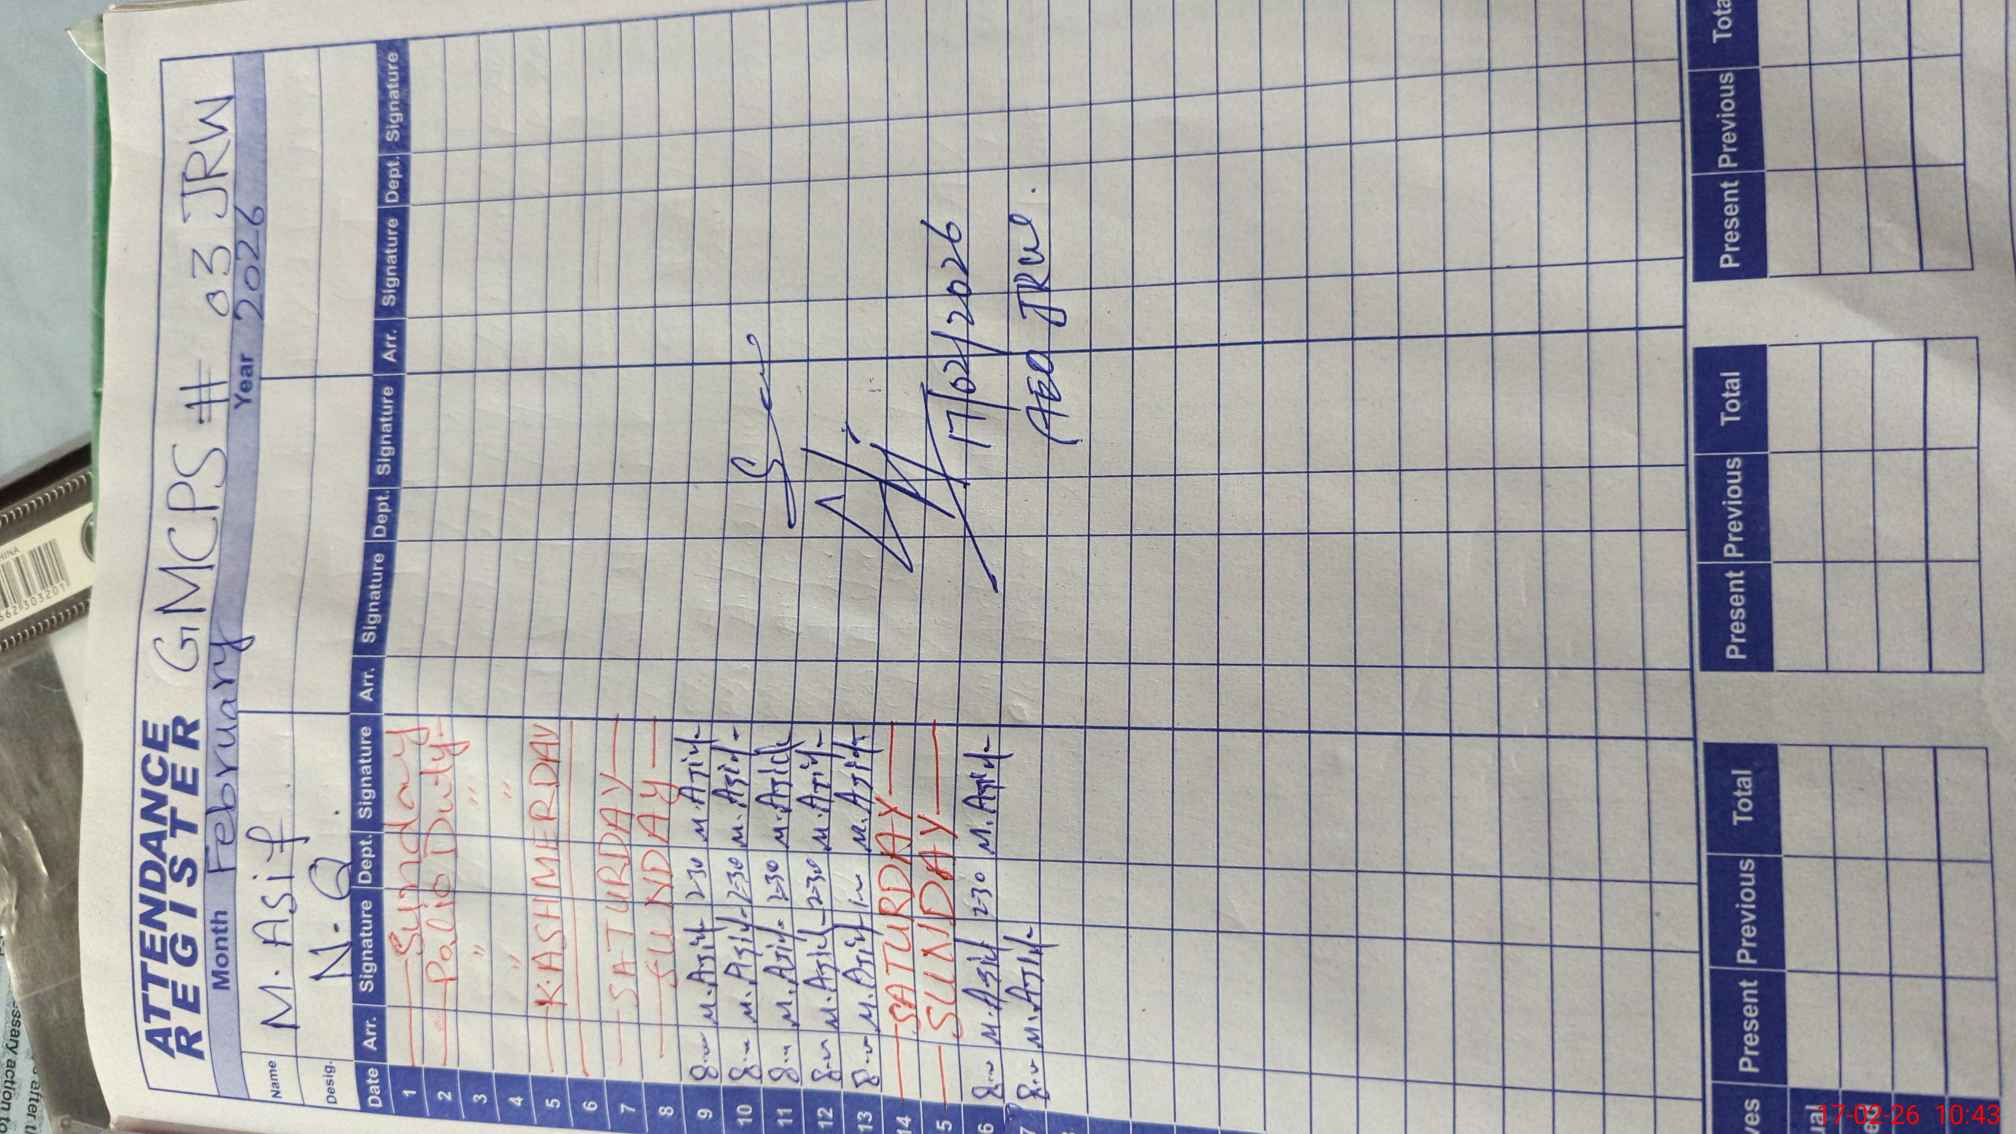 ATTENDANCE
REGISTER GMCPS # 03 JRW
Month February Year 2026
Name M. Asif
Desig. N.Q.
Date Arr. Signature Dept. Signature Arr. Signature Dept. Signature Arr. Signature Dept. Signature
1 Sunday
2 Polio Duty
3 " "
4 " "
5 KASHMER DAY
6
7 SATURDAY
8 SUNDAY
9 M. Asif 2-30 M. Asif
10 M. Asif 2-30 M. Asif
11 M. Asif 2-30 M. Asif
12 M. Asif 2-30 M. Asif
13 M. Asif M. Asif
14 SATURDAY
5 SUNDAY
6 M. Asif 2-30 M. Asif
7 M. Asif
17/02/2026
AEO JRW.
ves Present Previous Total Present Previous Total Present Previous Tota
ual
17-02-26 10:43
HINA
ssary action to